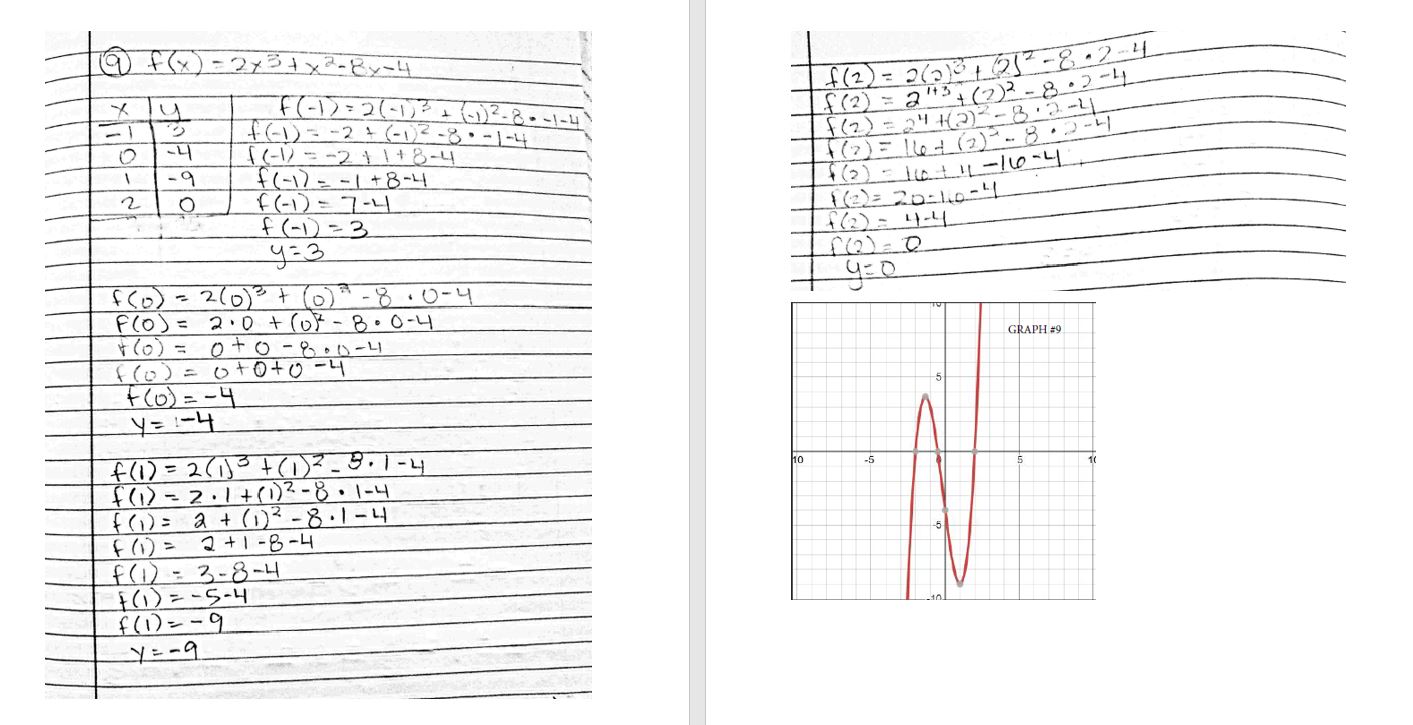 9 f(x) = 2x³ + x² - 8x - 4
x y
-1 3
0 -4
1 -9
2 0
f(-1) = 2(-1)³ + (-1)² - 8 • -1 - 4
f(-1) = -2 + (-1)² - 8 • -1 - 4
f(-1) = -2 + 1 + 8 - 4
f(-1) = -1 + 8 - 4
f(-1) = 7 - 4
f(-1) = 3
y = 3
f(0) = 2(0)³ + (0)² - 8 • 0 - 4
f(0) = 2 • 0 + (0)² - 8 • 0 - 4
f(0) = 0 + 0 - 8 • 0 - 4
f(0) = 0 + 0 + 0 - 4
f(0) = -4
y = -4
f(1) = 2(1)³ + (1)² - 8 • 1 - 4
f(1) = 2 • 1 + (1)² - 8 • 1 - 4
f(1) = 2 + (1)² - 8 • 1 - 4
f(1) = 2 + 1 - 8 - 4
f(1) = 3 - 8 - 4
f(1) = -5 - 4
f(1) = -9
y = -9
f(2) = 2(2)³ + (2)² - 8 • 2 - 4
f(2) = 2¹⁺³ + (2)² - 8 • 2 - 4
f(2) = 2⁴ + (2)² - 8 • 2 - 4
f(2) = 16 + (2)² - 8 • 2 - 4
f(2) = 16 + 4 - 16 - 4
f(2) = 20 - 16 - 4
f(2) = 4 - 4
f(2) = 0
y = 0
10
GRAPH #9
5
10 -5 0 5 10
-5
-10